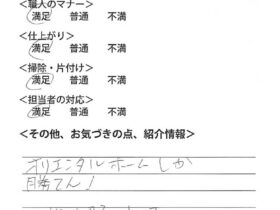 <職人のマナー>
満足 普通 不満
<仕上がり>
満足 普通 不満
<掃除・片付け>
満足 普通 不満
<担当者の対応>
満足 普通 不満
<その他、お気づきの点、紹介情報>
オリエンタルホームしか
勝てん!